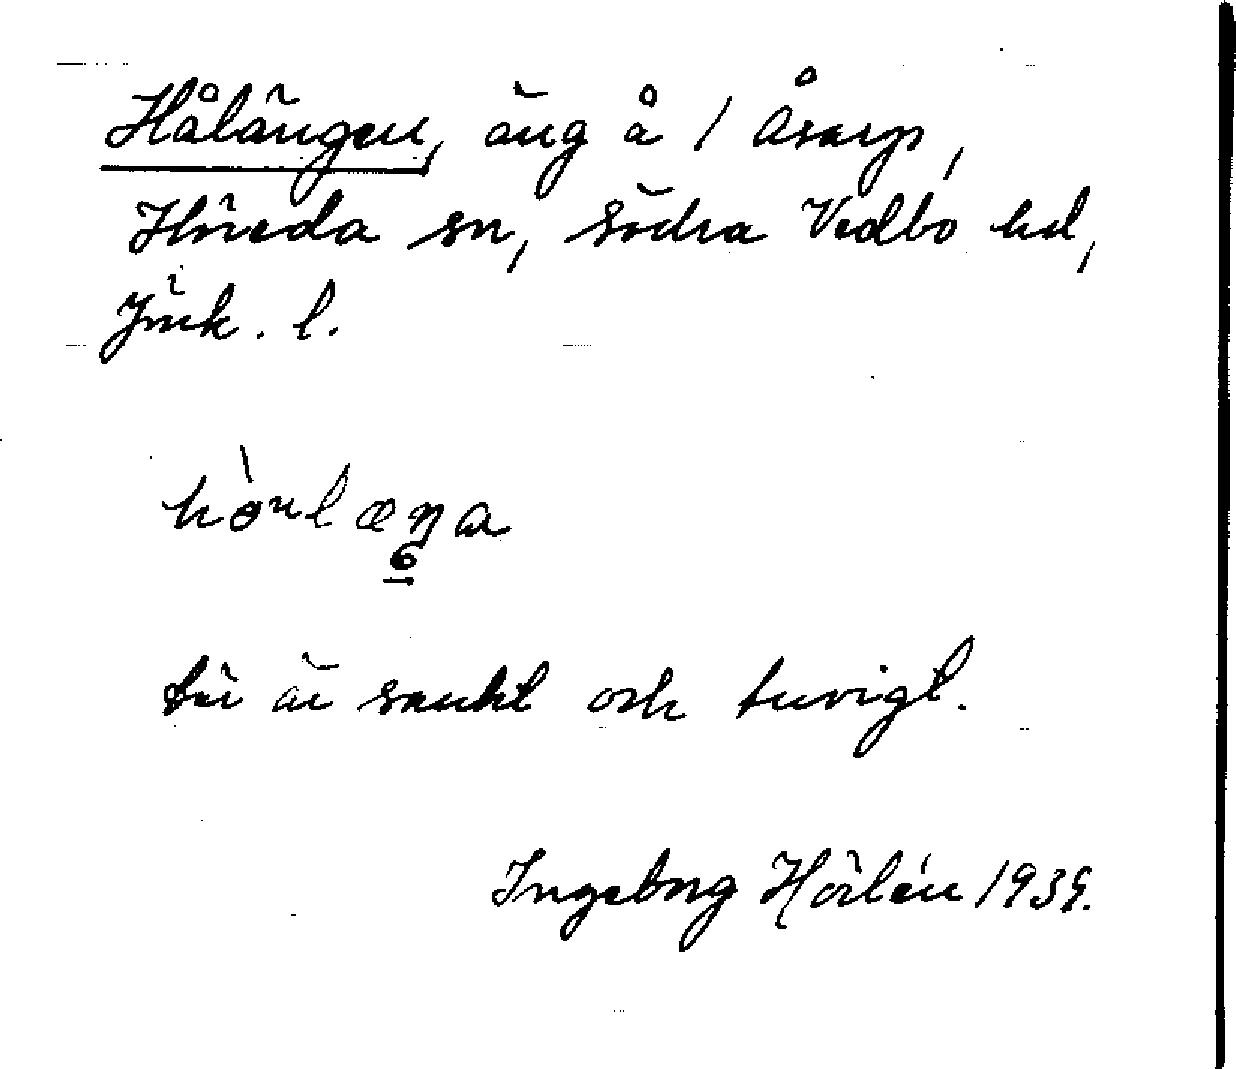 Hålängen, äng å 1 Åsarp,
Höreda sn, södra Vedbo hd,
Jönk. l.
är sankt och tuvigt.
Ingeborg Hörlén 1939.